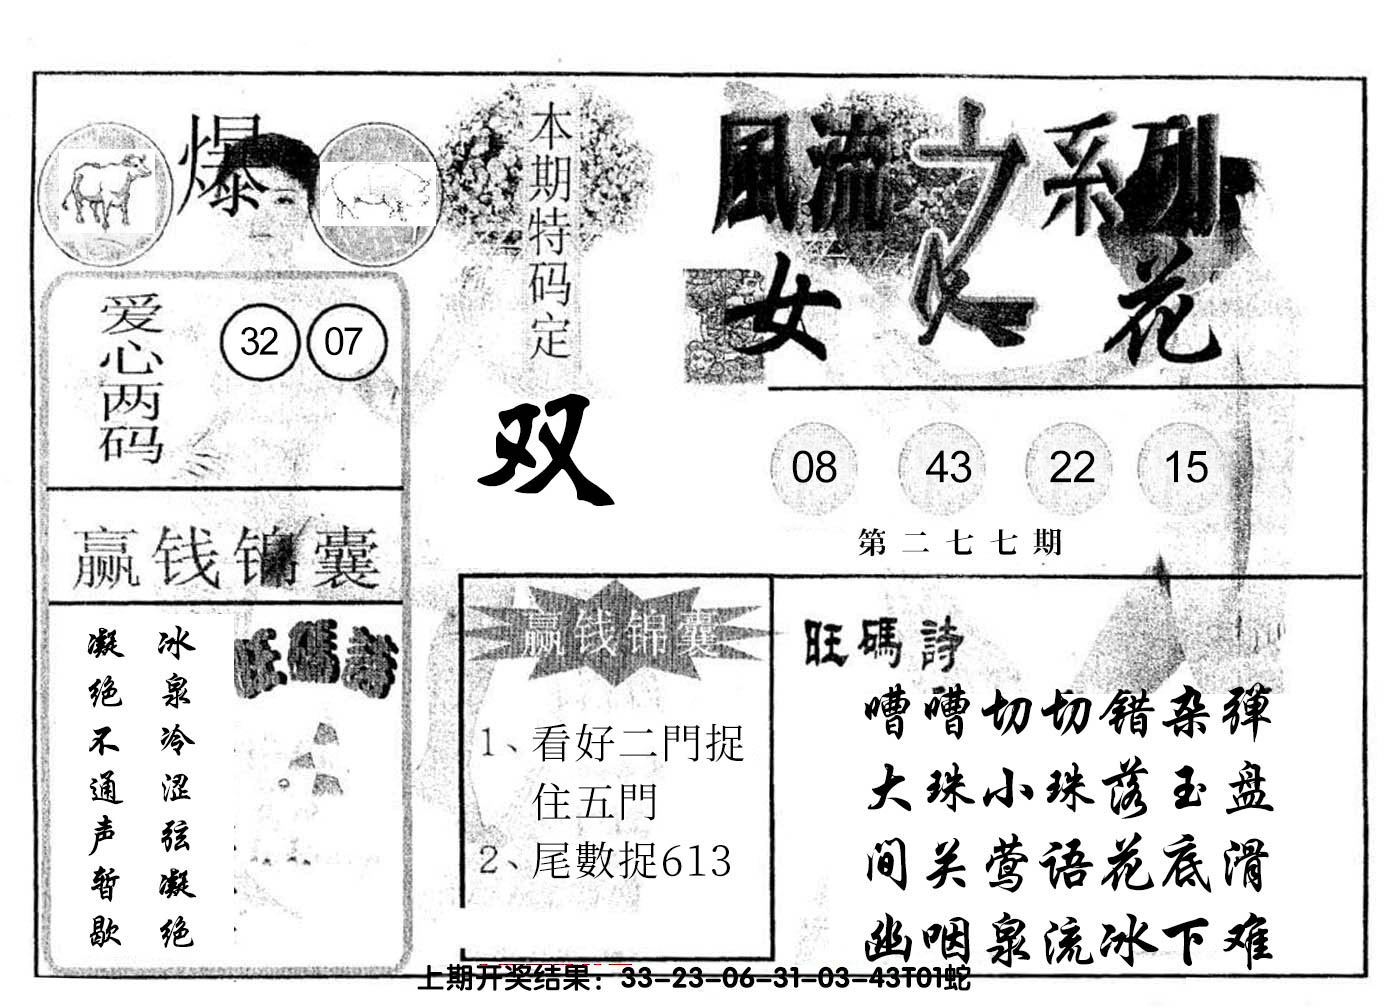 爆
本期特码定
双
風流之系列
女人花
爱心两码
32 07
08 43 22 15
第二七七期
赢钱锦囊
旺碼詩
冰泉冷涩弦凝绝
凝绝不通声暂歇
赢钱锦囊
1、看好二門捉
住五門
2、尾數捉613
旺碼詩
嘈嘈切切错杂弹
大珠小珠落玉盘
间关莺语花底滑
幽咽泉流冰下难
上期开奖结果：33-23-06-31-03-43T01蛇